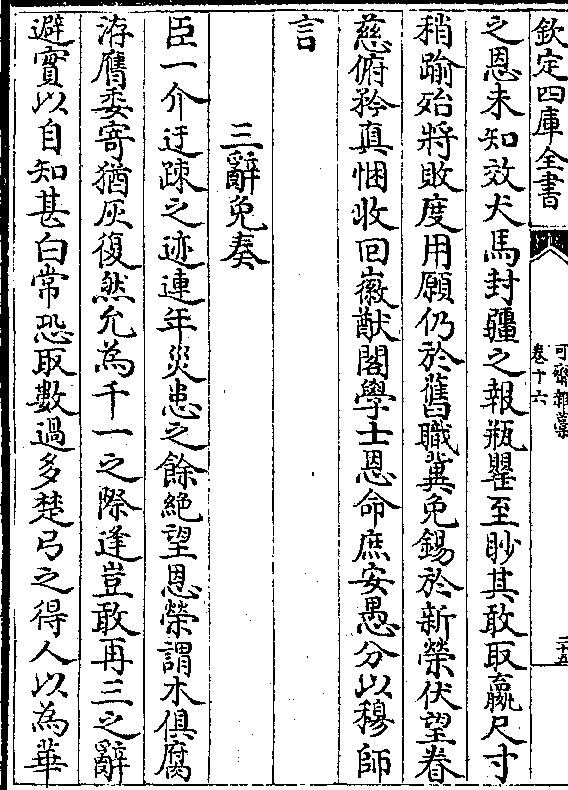 欽定四庫全書
可齋雜藁
卷十六
二十五
之恩未知效犬馬封疆之報瓶罌至眇其敢取贏尺寸
稍踰殆將敗度用願仍於舊職冀免錫於新榮伏望眷
慈俯矜真悃收回徽猷閣學士恩命庶安愚分以穆師
言
三辭免奏
臣一介迂踈之迹連年災患之餘絶望恩榮謂木俱腐
洊膺委寄猶灰復然允為千一之際逢豈敢再三之辭
避實以自知甚白常恐取數過多楚弓之得人以為華